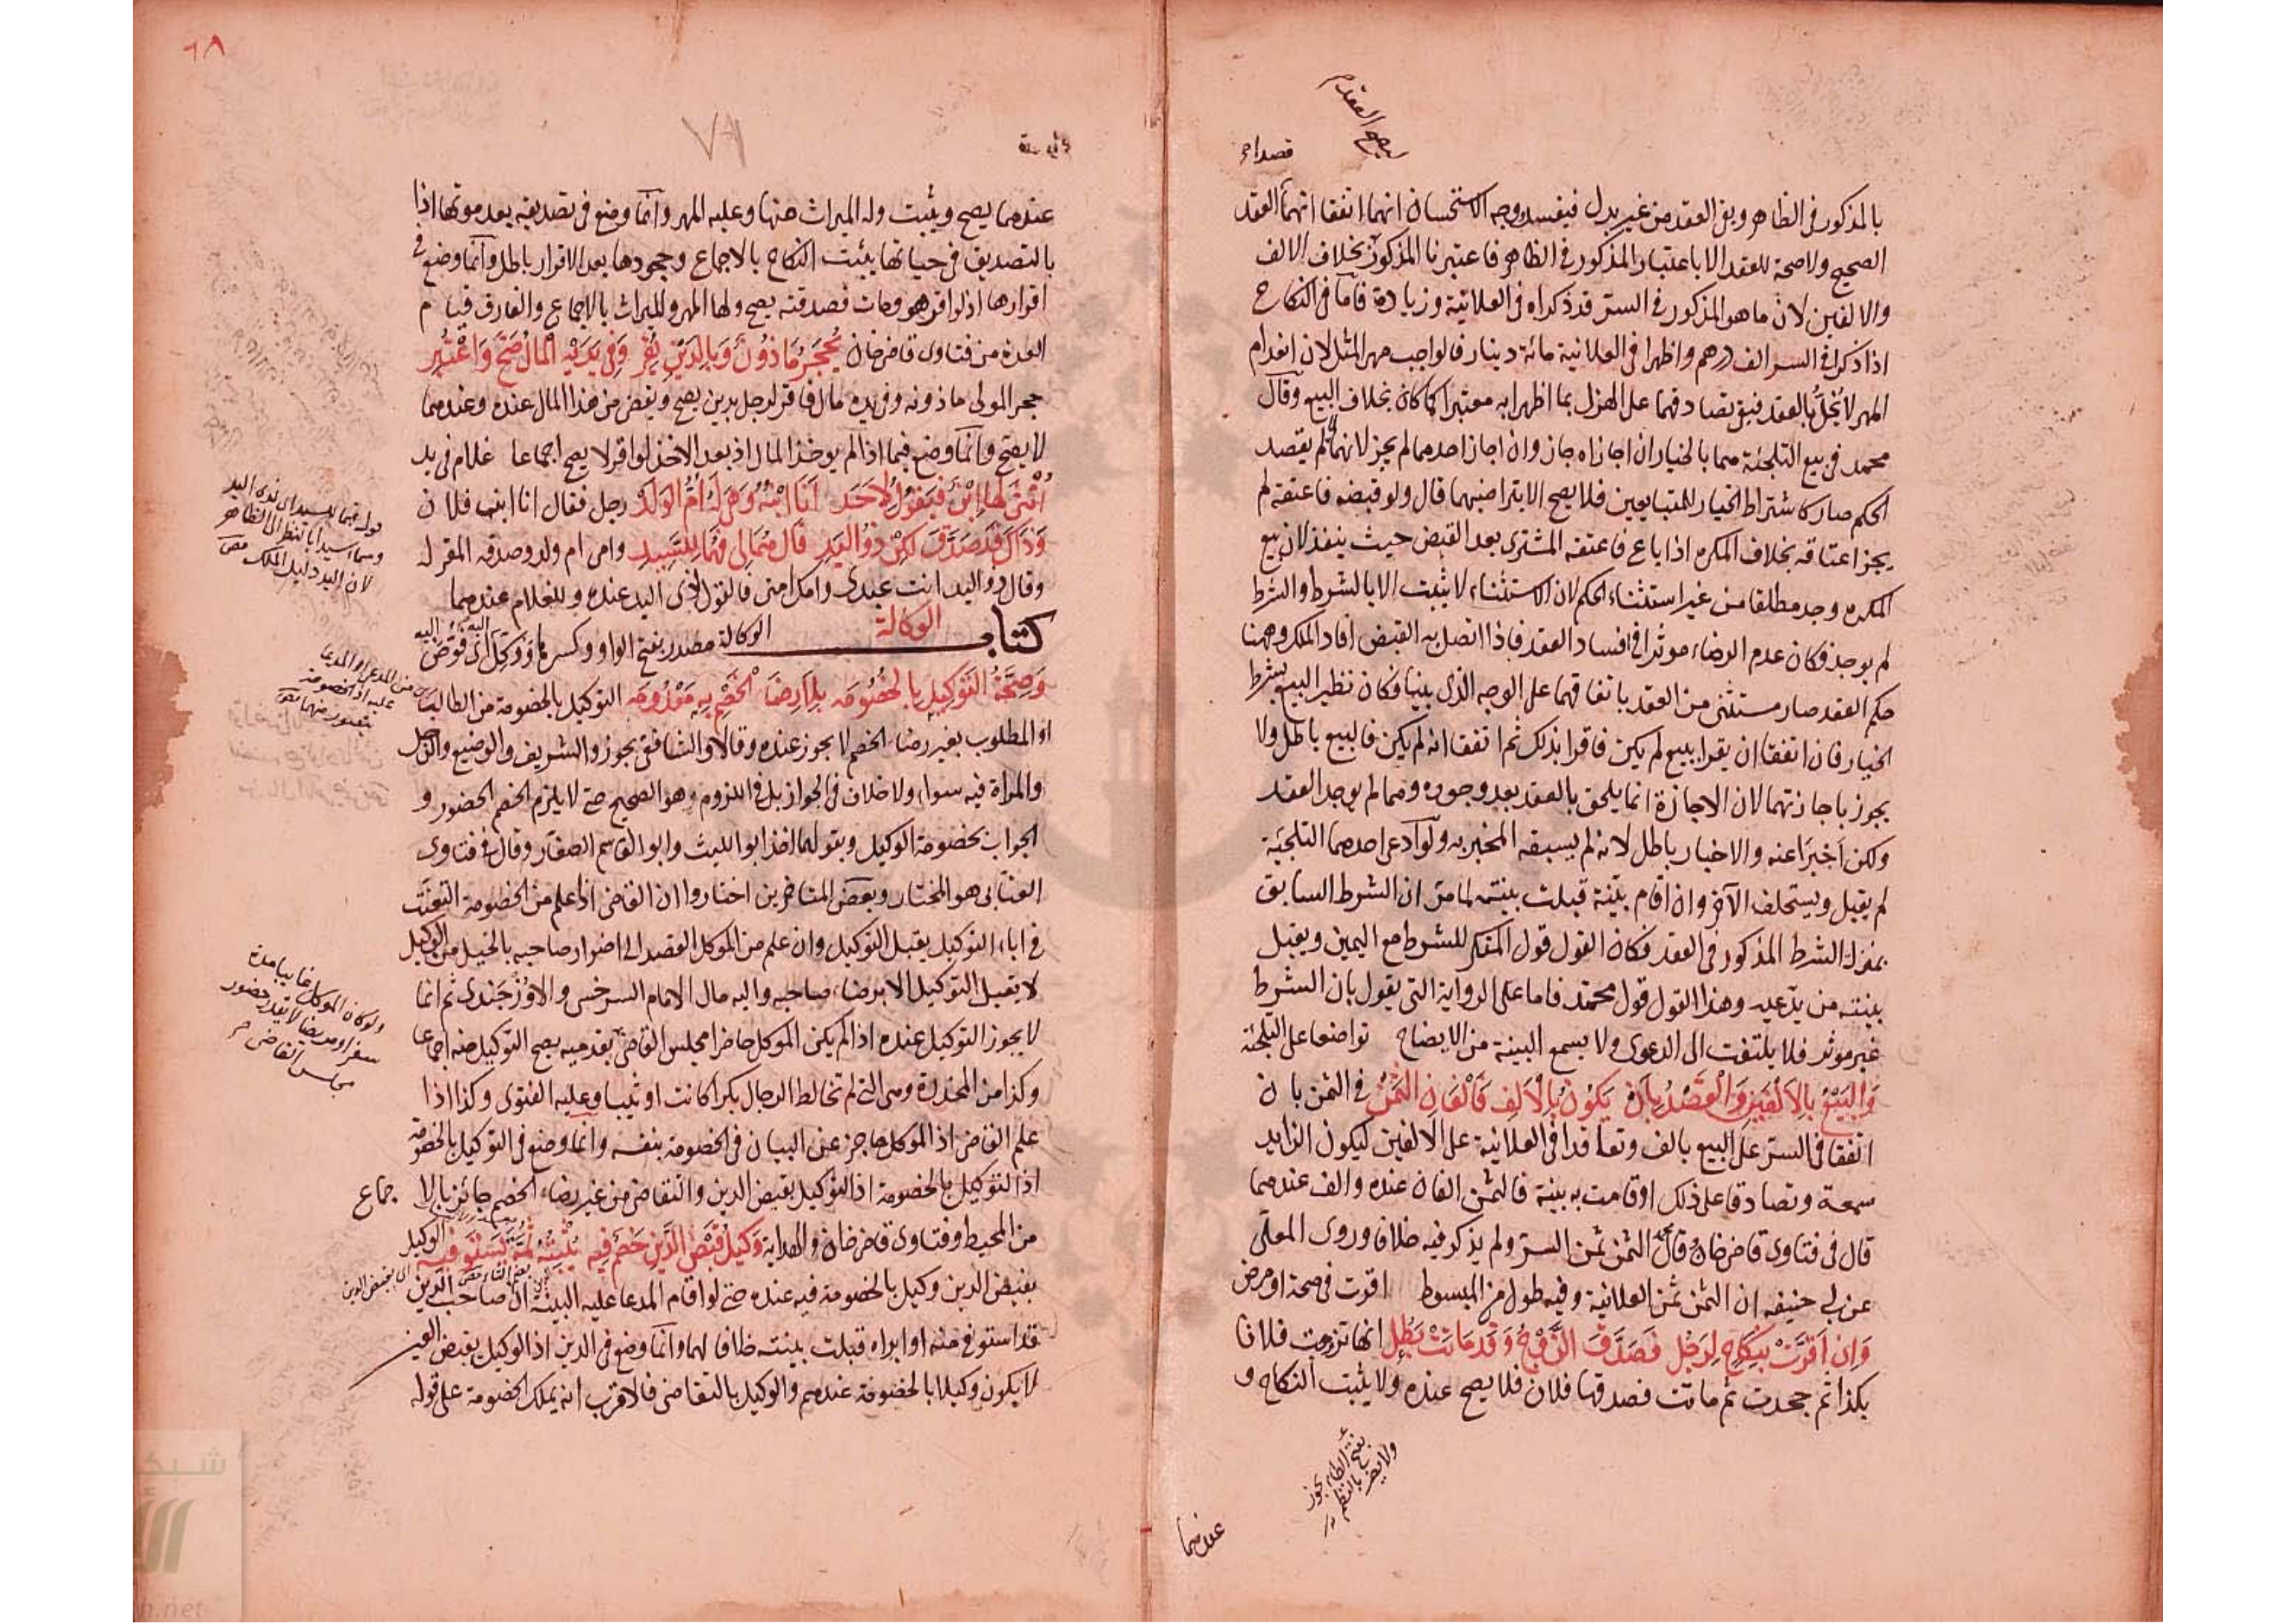 قصدا
بالمذكور فى الظاهر وبقى العقد من غير بدل فيفسد وجه الاستحسان انهما اتفقا انهما العقد
الصحيح ولا صحة للعقد الا باعتبار المذكور فى الظاهر فاعتبرنا المذكور بخلاف الالف
والالفين لان ما هو المذكور فى السر قد ذكراه فى العلانية وزيادة فاما فى النكاح
اذا ذكرا فى السر الف درهم واظهرا فى العلانية مائة دينار فالواجب مهر المثل لان انعدام
المهر لا يخل بالعقد فبقى تصادقهما على الهزل بما اظهرا به معتبرا كما كان بخلاف البيع وقال
محمد فى بيع التلجئة هما بالخيار ان اجازاه جاز وان اجاز احدهما لم يجز لانهما لم يقصد
الحكم صار كاشتراط الخيار للمتبايعين فلا يصح الا بتراضيهما قال ولو قبضه فاعتقه لم
يجز اعتاقه بخلاف المكره اذا باع فاعتقه المشترى بعد القبض حيث ينفذ لان بيع
المكره وجد مطلقا من غير استثناء الحكم لان الاستثناء لا يثبت الا بالشرط والشرط
لم يوجد فكان عدم الرضاء موثرا فى افساد العقد فاذا اتصل به القبض افاد الملك وههنا
حكم العقد صار مستثنى من العقد باتفاقهما على الوجه الذى بينا فكان نظير البيع بشرط
الخيار فان اتفقا ان يقرا ببيع لم يكن فاقرا بذلك ثم اتفقا انه لم يكن فالبيع باطل ولا
يجوز باجازتهما لان الاجازة انما يلحق بالعقد بعد وجوده وهما لم يوجد العقد
ولكن اخبرا عنه والاخبار باطل لانه لم يسبقه المخبر به ولو ادعى احدهما التلجئة
لم يقبل ويستحلف الآخر وان اقام بينة قبلت بينته لما مر ان الشرط السابق
بمنزلة الشرط المذكور فى العقد فكان القول قول المنكر للشرط مع اليمين ويقبل
بينته من يدعيه وهذا القول قول محمد فاما على الرواية التى يقول بان الشرط
غير موثر فلا يلتفت الى الدعوى ولا يسمع البينة من الايضاح تواضعا على التلجئة
والبيع بالالفين والقصد بان يكون بالالف فالفان الثمن فى الثمن بان
اتفقا فى السر على البيع بالف وتعاقدا فى العلانية على الالفين ليكون الزايد
سمعة وتصادقا على ذلك او قامت به بينة فالثمن الفان عنده والف عندهما
قال فى فتاوى قاضى خان قال الثمن ثمن السر ولم يذكر فيه خلافا وروى المعلى
عن ابى حنيفه ان الثمن ثمن العلانية وفيه طول من المبسوط اقرت فى صحة او مرض
وان اقرت بنكاح لرجل فصدق الزوج وقد ماتت بطل انها تزوجت فلانا
بكذا ثم جحدت ثم ماتت فصدقها فلان فلا يصح عنده ولا يثبت النكاح و
عندهما
٦٨
عندهما يصح ويثبت وله الميراث منها وعليه المهر وانما وضع فى تصديقه بعد موتها اذا
بالتصديق فى حياتها يثبت النكاح بالاجماع وجحودها بعد الاقرار باطل وانما وضع فى
اقرارها اذ لو اقر هو ومات فصدقته يصح ولها المهر والميراث بالاجماع والفارق قيام
العدة من فتاوى قاضى خان يحجر ماذون وبالدين يقر وفى يديه المال صح واعتبر
حجر المولى ماذونه وفى يده مال فاقر لرجل بدين يصح ويقضى من هذا المال عنده وعندهما
لا يصح وانما وضع فيما اذا لم يوخذ المال اذ بعد الاخذ لو اقر لا يصح اجماعا غلام فى يد
انثى لها ابن فيقول لاحد انا ابنه وهى له ام الولد رجل فقال انا ابن فلان
وذاك قد صدق لكن ذو اليد قال هما لى فهما للسيد وامى ام ولد وصدقه المقر له
وقال ذو اليد انت عبدى وامك امتى فالقول لذى اليد عنده وللغلام عندهما
كتاب الوكالة الوكالة مصدر بفتح الواو وكسرها وكل اى فوض اليه
وصحة التوكيل بالخصومه بلا رضا الخصم به معدومه التوكيل بالخصومة من الطالب
او المطلوب بغير رضاء الخصم لا يجوز عنده وقالا والشافعى يجوز والشريف والوضيع والرجل
والمراة فيه سواء ولا خلاف فى الجواز بل فى اللزوم وهو الصحيح حتى لا يلزم الخصم الحضور و
الجواب بخصومة الوكيل وبقولهما اخذ ابو الليث وابو القاسم الصفار وقال فى فتاوى
العتابى هو المختار وبعض المتاخرين اختاروا ان القاضى اذا علم من الخصومة التعنت
فى اباء التوكيل يقبل التوكيل وان علم من الموكل القصد الى اضرار صاحبه بالحيل من الوكيل
لا يقبل التوكيل الا برضاء صاحبه واليه مال الامام السرخسى والاوزجندى ثم انما
لا يجوز التوكيل عنده اذا لم يكن الموكل حاضرا مجلس القاضى بقدميه يصح التوكيل منه اجماعا
وكذا من المخدرة وهى التى لم تخالط الرجال بكرا كانت او ثيبا وعليه الفتوى وكذا اذا
علم القاضى اذ الموكل عاجز عن البيان فى الخصومة بنفسه وانما وضع فى التوكيل بالخصومة
اذ التوكيل بالخصومة اذ التوكيل بقبض الدين والتقاضى من غير رضاء الخصم جائز بالاجماع
من المحيط وفتاوى قاضى خان والهداية وكيل قبض الدين خصم فيه يثبته ثمة يستوفيه الوكيل
بقبض الدين وكيل بالخصومة فيه عنده حتى لو اقام المدعا عليه البينة ان صاحب الدين
قد استوفى منه او ابراه قبلت بينته خلافا لهما وانما وضع فى الدين اذ الوكيل بقبض العين
لا يكون وكيلا بالخصومة عندهم والوكيل بالتقاضى فالاقرب انه يملك الخصومة على قوله
لان اليد دليل الملك
ولو كان الموكل غايبا مدة
سفر او مريضا لا يقدر حضور
مجلس القاضى